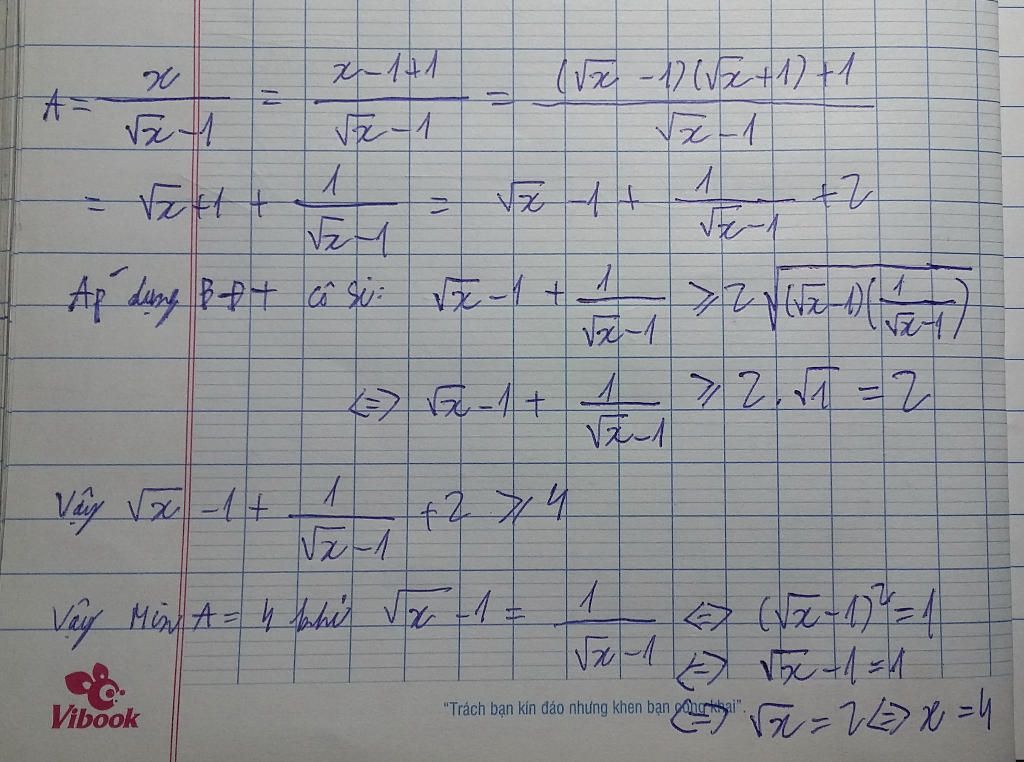 A = x/(√x - 1) = (x - 1 + 1)/(√x - 1) = ((√x - 1)(√x + 1) + 1)/(√x - 1)
= √x + 1 + 1/(√x - 1) = √x - 1 + 1/(√x - 1) + 2
Áp dụng BĐT cô si: √x - 1 + 1/(√x - 1) ⩾ 2√((√x - 1)(1/(√x - 1)))
⇔ √x - 1 + 1/(√x - 1) ⩾ 2.√1 = 2
Vậy √x - 1 + 1/(√x - 1) + 2 ⩾ 4
Vậy Min A = 4 khi √x - 1 = 1/(√x - 1) ⇔ (√x - 1)² = 1
⇔ √x - 1 = 1
⇔ √x = 2 ⇔ x = 4
Vibook
"Trách bạn kín đáo nhưng khen bạn công khai".